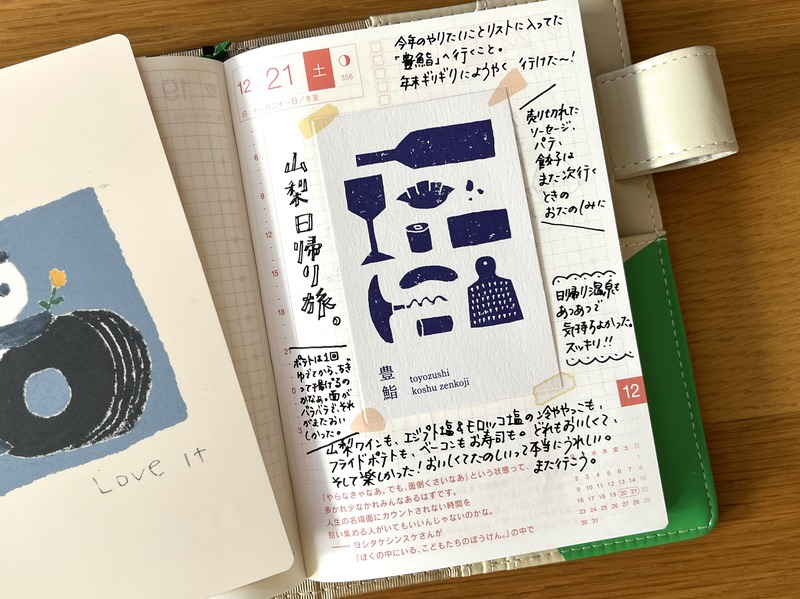 12 21 土 356
日 十一月二十一日／冬至
今年のやりたいことリストに入ってた
「豊鮨」へ行くこと。
年末ギリギリにようやく行けた〜！
売り切れた
ソーセージ、
パテ、
餃子は
また次行く
ときの
おたのしみに
山梨日帰り旅。
日帰り温泉も
あつあつで
気持ちよかった。
スッキリ!!
豊鮨
toyozushi
koshu zenkoji
ポテトは1回
ゆでてから、ちぎ
って揚げるの
かなぁ。面が
バラバラで、それ
がまたおい
しかった。
山梨ワインも、エジプト塩&モロッコ塩の冷ややっこも、
フライドポテトも、ベーコンもお寿司も。どれもおいしくて、
そして楽しかった！おいしくてたのしいって本当にうれしい。
また行こう。
12
「やらなきゃなあ。でも、面倒くさいなあ」という状態って、
多かれ少なかれみんなあるはずです。
人生の名場面にカウントされない時間を
拾い集める人がいてもいいんじゃないのかな。
──ヨシタケシンスケさんが
『ぼくの中にいる、こどもたちのぼうけん。』の中で
月 火 水 木 金 土 日
1
2 3 4 5 6 7 8
9 10 11 12 13 14 15
16 17 18 19 20 21 22
23 24 25 26 27 28 29
30 31
Love it